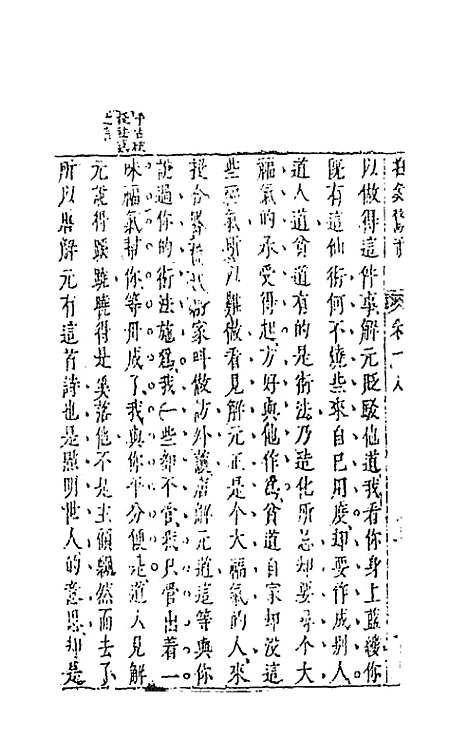 拍案驚奇　卷十八
以做得這件事解元貶駁他道我看你身上藍縷你
既有這仙術何不燒些來自己用度却要作成別人
道人道貧道有的是術法乃造化所忌却要尋个大
福氣的承受得起方好與他作為貧道自家却沒這
些福氣所以難做看見解元正是个大福氣的人來
投合夥我們術家叫做訪外護唐解元道這等與你
說過你的術法施為我一些都不管我只管出着一
味福氣幫你等丹成了我與你平分便是道人見解
元說得蹊蹺曉得是奚落他不是主顧飄然而去了
所以唐解元有這首詩也是點明世人的意思却是